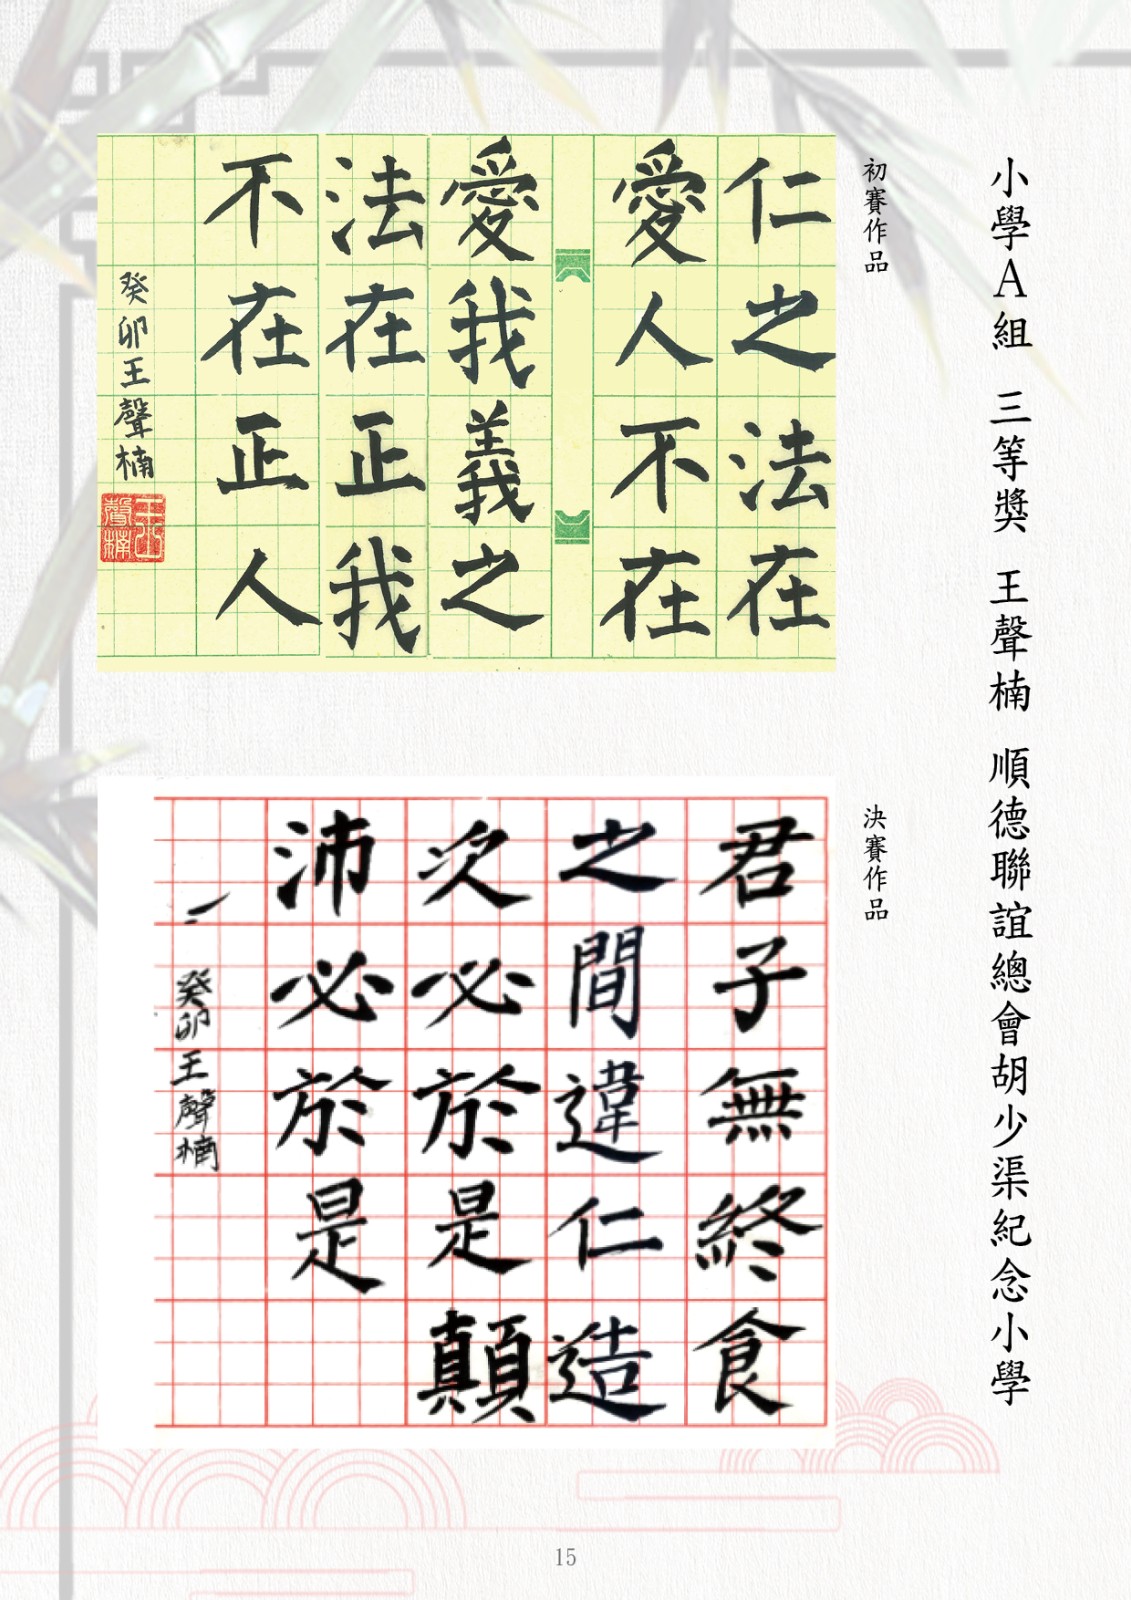 小學A組 三等獎 王聲楠 順德聯誼總會胡少渠紀念小學
初賽作品
仁之法在
愛人不在
愛我義之
法在正我
不在正人
癸卯王聲楠
決賽作品
君子無終食
之間違仁造
次必於是顛
沛必於是
癸卯王聲楠
15